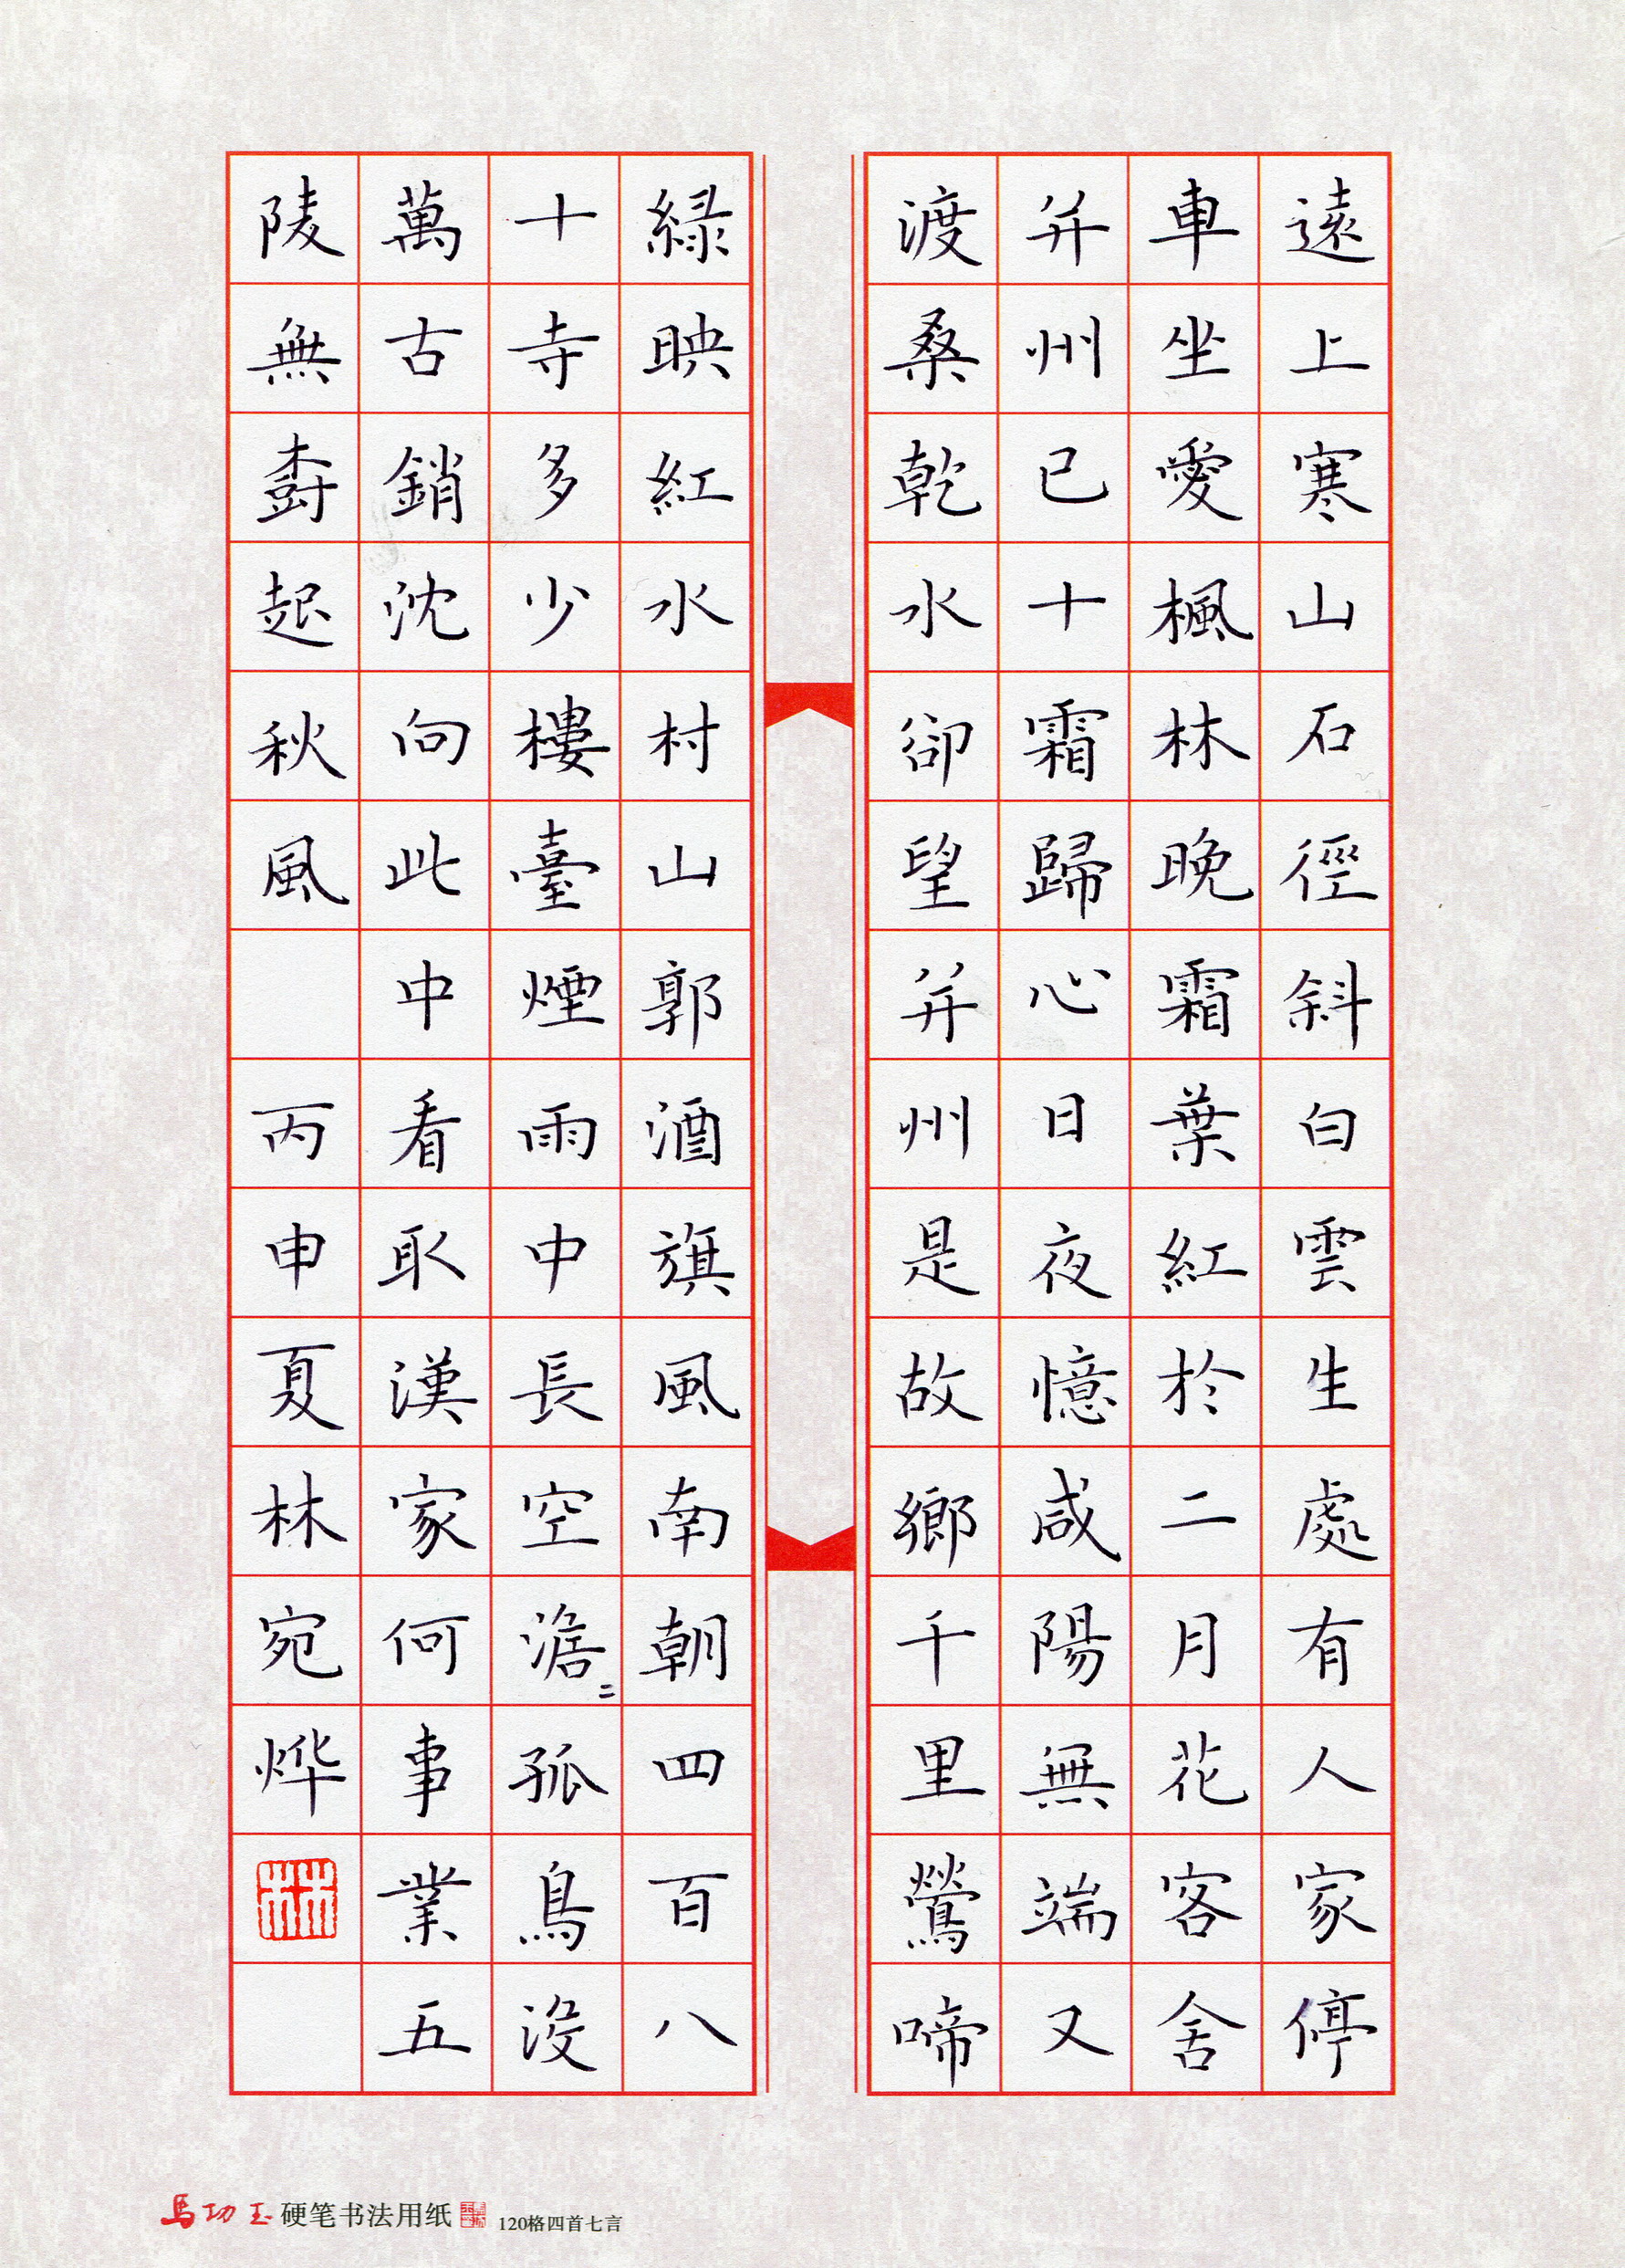 遠上寒山石徑斜白雲生處有人家停
車坐愛楓林晚霜葉紅於二月花客舍
并州已十霜歸心日夜憶咸陽無端又
渡桑乾水卻望并州是故鄉千里鶯啼
緑映紅水村山郭酒旗風南朝四百八
十寺多少樓臺煙雨中長空澹〻孤鳥没
萬古銷沈向此中看取漢家何事業五
陵無樹起秋風 丙申夏林宛烨
馬功玉 硬笔书法用纸 120格四首七言